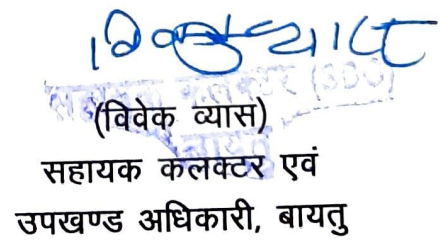 (विवेक व्यास)
सहायक कलक्टर एवं
उपखण्ड अधिकारी, बायतु